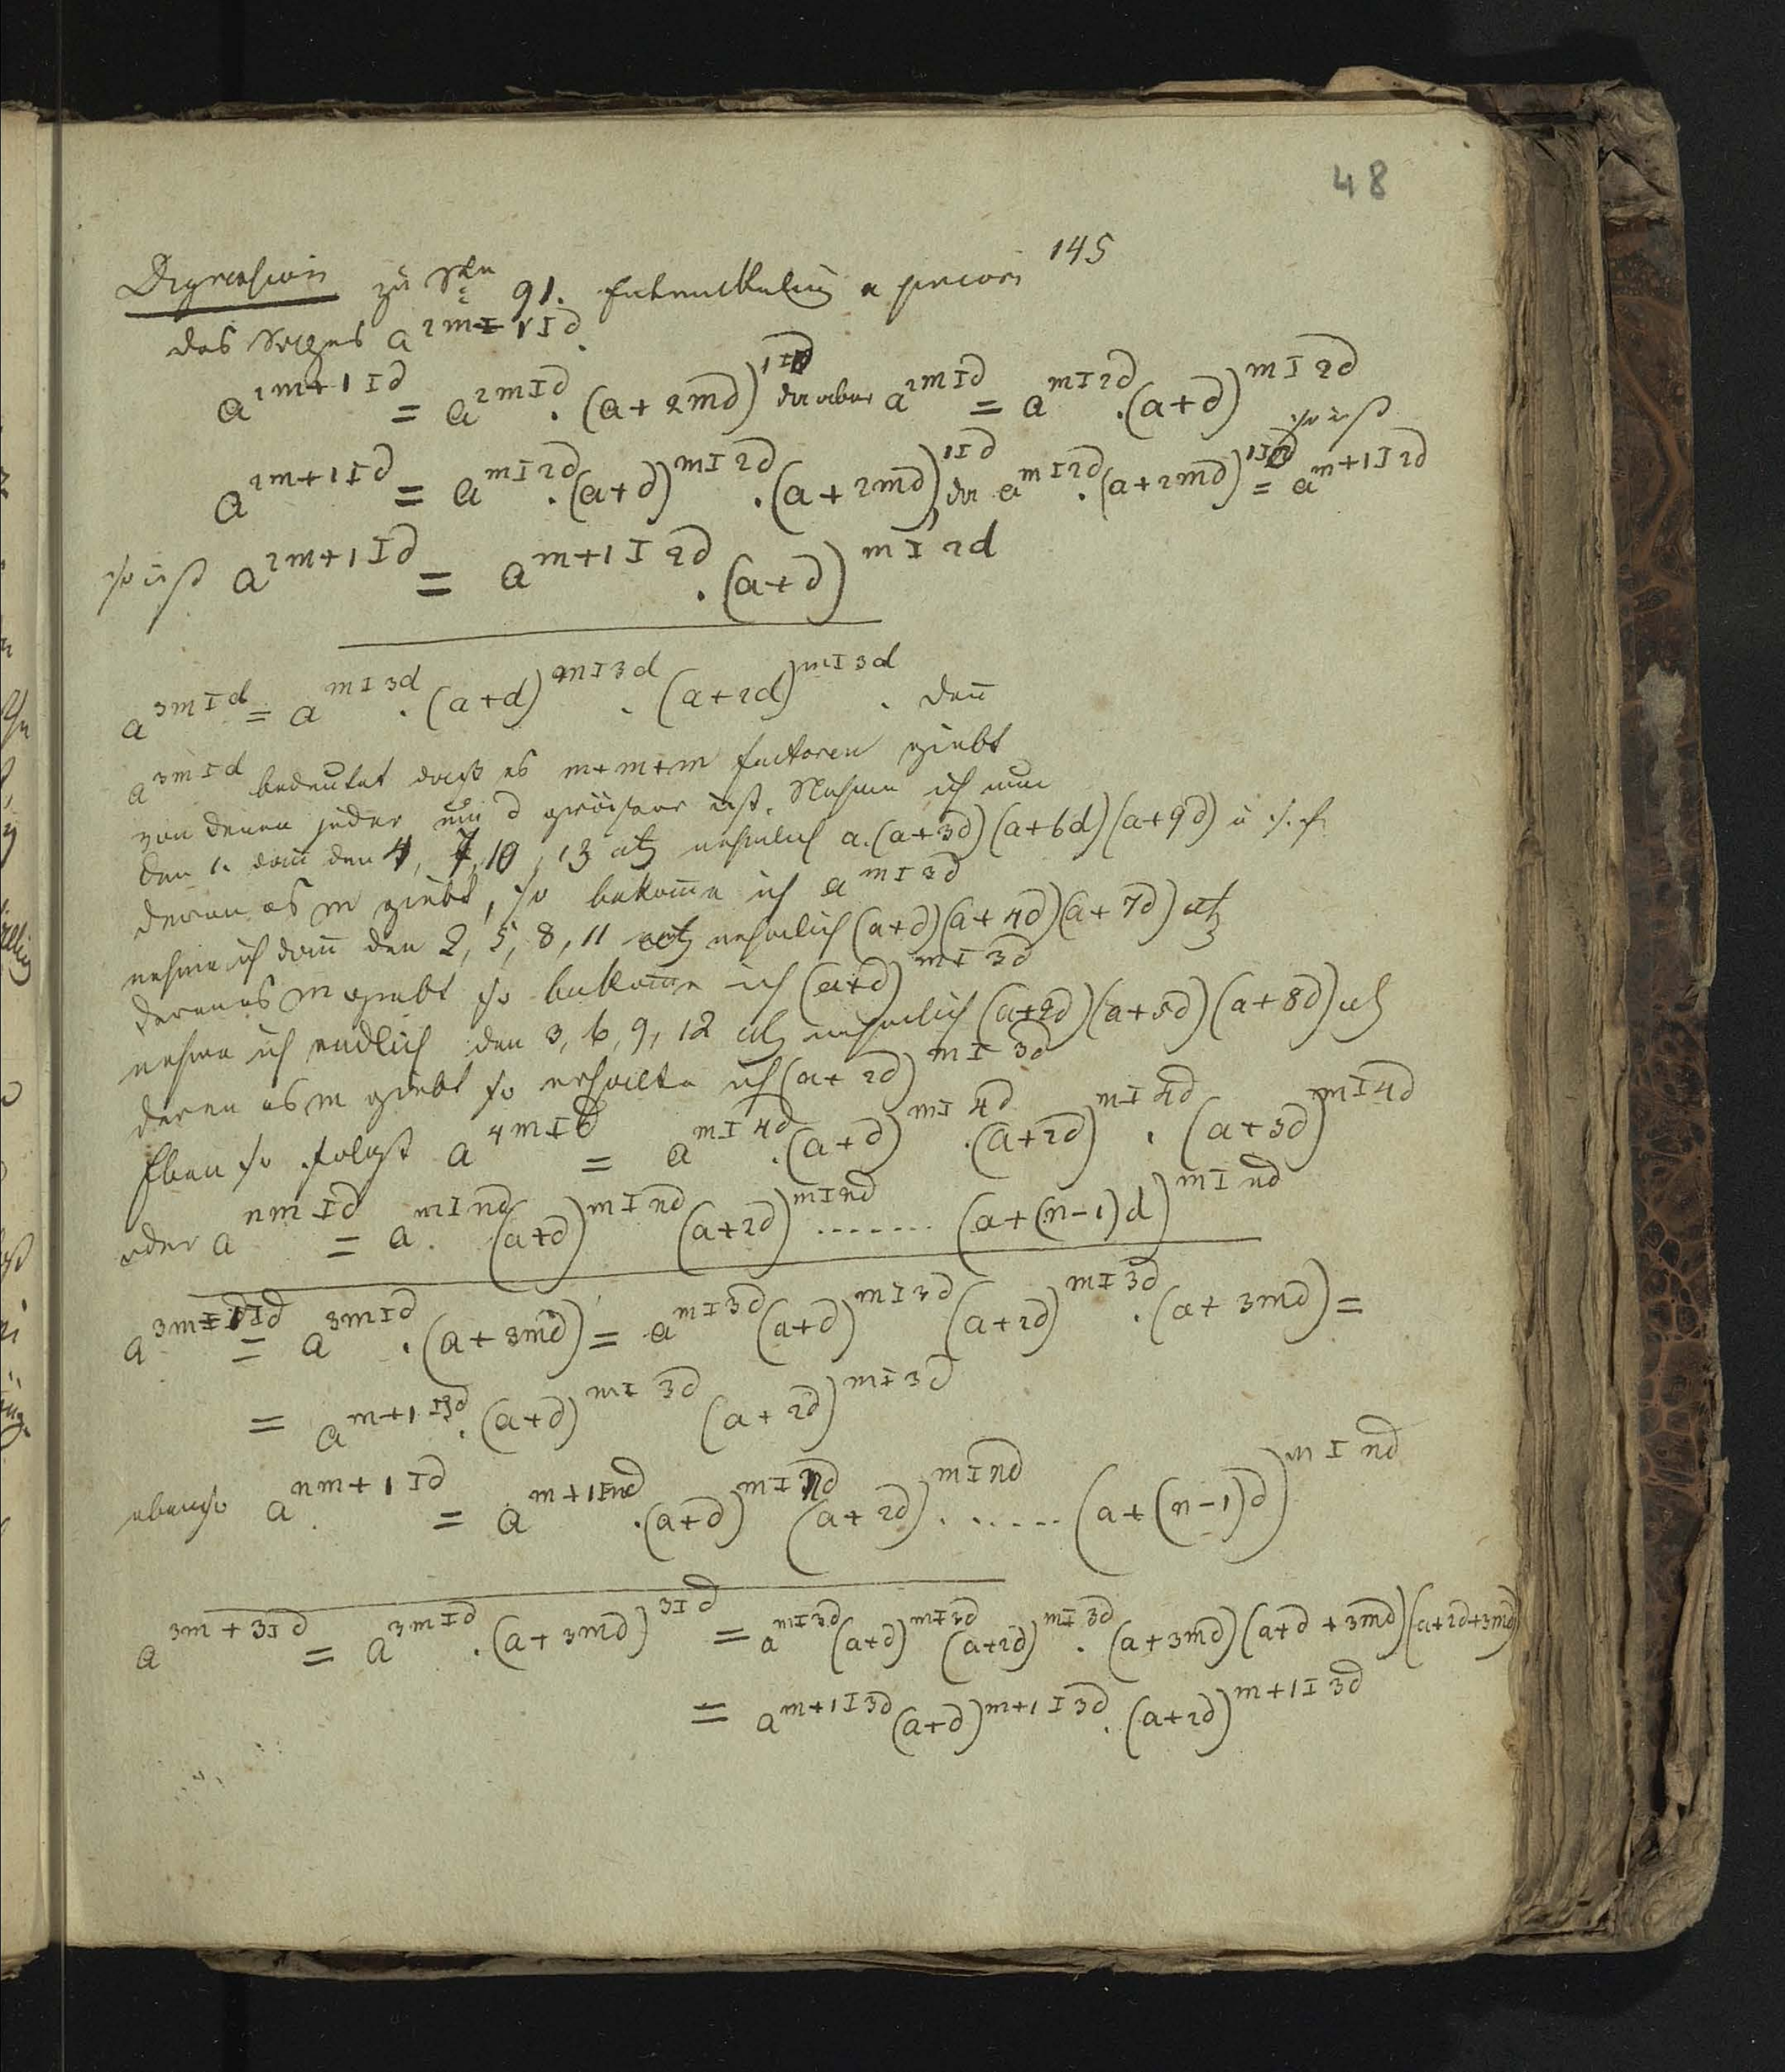 48
145
Digression zu S 91. Entwickelung a priori
des Satzes a^{2m+1 I d}.
a^{2m+1 I d} = a^{2m I d} . (a+2md)^{1 I d} da aber a^{2m I d} = a^{m I 2d} . (a+d)^{m I 2d}
so ist
a^{2m+1 I d} = a^{m I 2d} . (a+d)^{m I 2d} . (a+2md)^{1 I d}, da a^{m I 2d} . (a+2md)^{1 I 2d} = a^{m+1 I 2d}
so ist a^{2m+1 I d} = a^{m+1 I 2d} . (a+d)^{m I 2d}
a^{3m I d} = a^{m I 3d} . (a+d)^{m I 3d} . (a+2d)^{m I 3d} . den̄
a^{3m I d} bedeutet daß es m+m+m factoren giebt
von denen jeder um d grösser ist. Nehme ich nun
den 1. dan̄ den 4, 7, 10, 13 etz nehmlich a.(a+3d)(a+6d)(a+9d) u s. f.
deren es m giebt, so bekom̄e ich a^{m I 3d}
nehme ich dan̄ den 2, 5, 8, 11 etz nehmlich (a+d)(a+4d)(a+7d) etz
deren es m giebt so bekom̄e ich (a+d)^{m I 3d}
nehme ich endlich den 3, 6, 9, 12 etz nehmlich (a+2d)(a+5d)(a+8d) etz
deren es m giebt so erhalte ich (a+2d)^{m I 3d}
Eben so folgt a^{4m I d} = a^{m I 4d} . (a+d)^{m I 4d} . (a+2d)^{m I 4d} . (a+3d)^{m I 4d}
oder a^{nm I d} = a^{m I nd} . (a+d)^{m I nd} (a+2d)^{m I nd} ........ (a+(n-1)d)^{m I nd}
a^{3m+1 I d} = a^{3m I d} . (a+3md) = a^{m I 3d} (a+d)^{m I 3d} (a+2d)^{m I 3d} . (a+3md) =
= a^{m+1 I 3d} . (a+d)^{m I 3d} (a+2d)^{m I 3d}
ebenso a^{nm+1 I d} = a^{m+1 I nd} . (a+d)^{m I nd} (a+2d)^{m I nd} ....... (a+(n-1)d)^{m I nd}
a^{3m+3 I d} = a^{3m I d} . (a+3md)^{3 I d} = a^{m I 3d} (a+d)^{m I 3d} (a+2d)^{m I 3d} . (a+3md)(a+d+3md)(a+2d+3md)
= a^{m+1 I 3d} (a+d)^{m+1 I 3d} . (a+2d)^{m+1 I 3d}